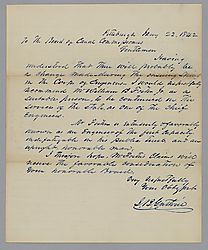 Pittsburgh May 22, 1842
To The Board of Canal Commissioners
Gentlemen
Having
understood that there will probably be
a change made during the
in the Corps of Engineers, I would respectfully
recommend Mr William B. Foster Jr. as a
suitable person, to be continued in the
service of the State, as one of the Chief
Engineers.
Mr Foster is extensively & favorably
known as an Engineer of the first capacity
indefatigable in his public trust and an
upright, honorable man.
I therefore hope, Mr Foster's Claims will
receive the favorable consideration of
Your Honorable Board.
Very respectfully
Your Obt Servt